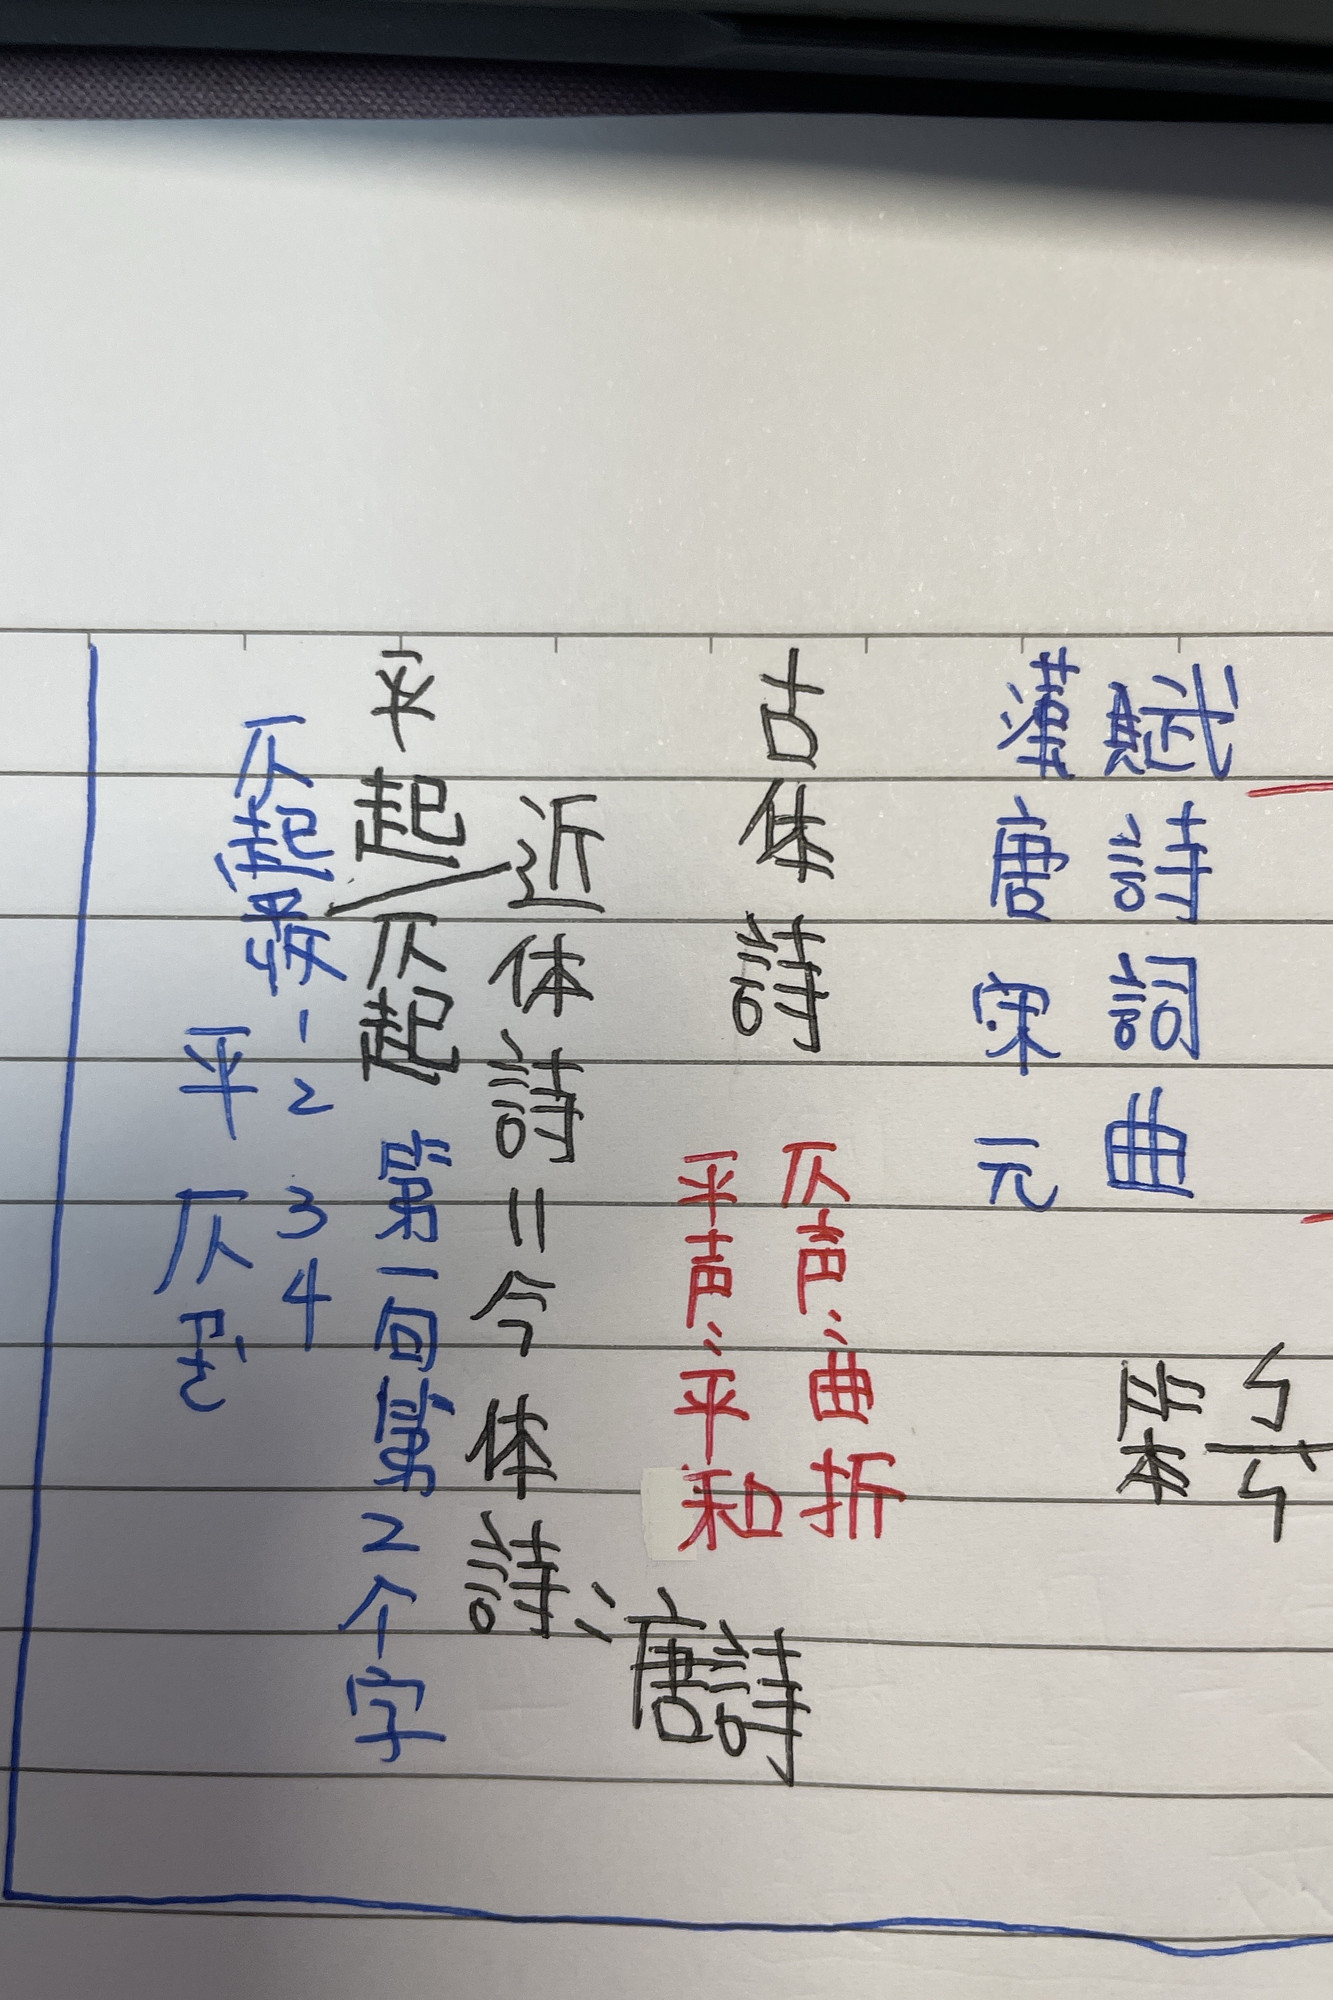 賦詩詞曲
漢唐宋元
古体詩
仄声:曲折
平声:平和
近体詩=今体詩:唐詩
平起/仄起 第一回第2个字
仄起
1 2 3 4
平 仄